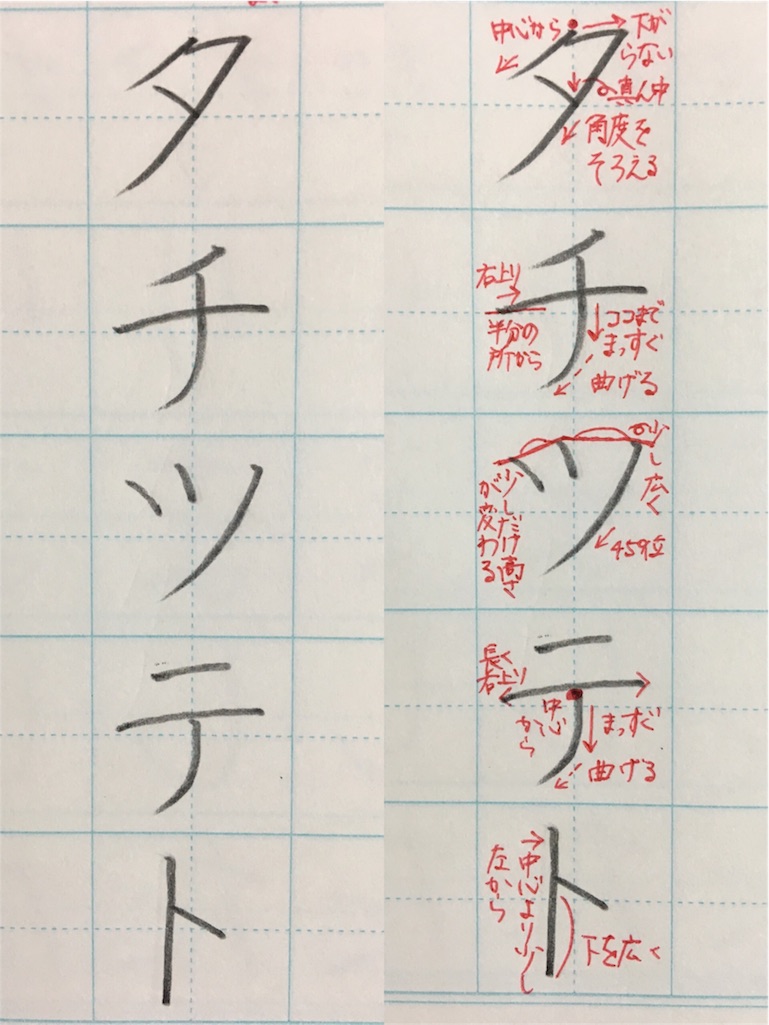 タ
チ
ツ
テ
ト
タ
中心から
下が
らない
真ん中
角度を
そろえる
チ
右上り
半分の
所から
ココまで
まっすぐ
曲げる
ツ
少し広く
少しだけ高さ
が変わる
45°位
テ
長く
右上り
中心
から
まっすぐ
曲げる
ト
中心より少し
左から
下を広く